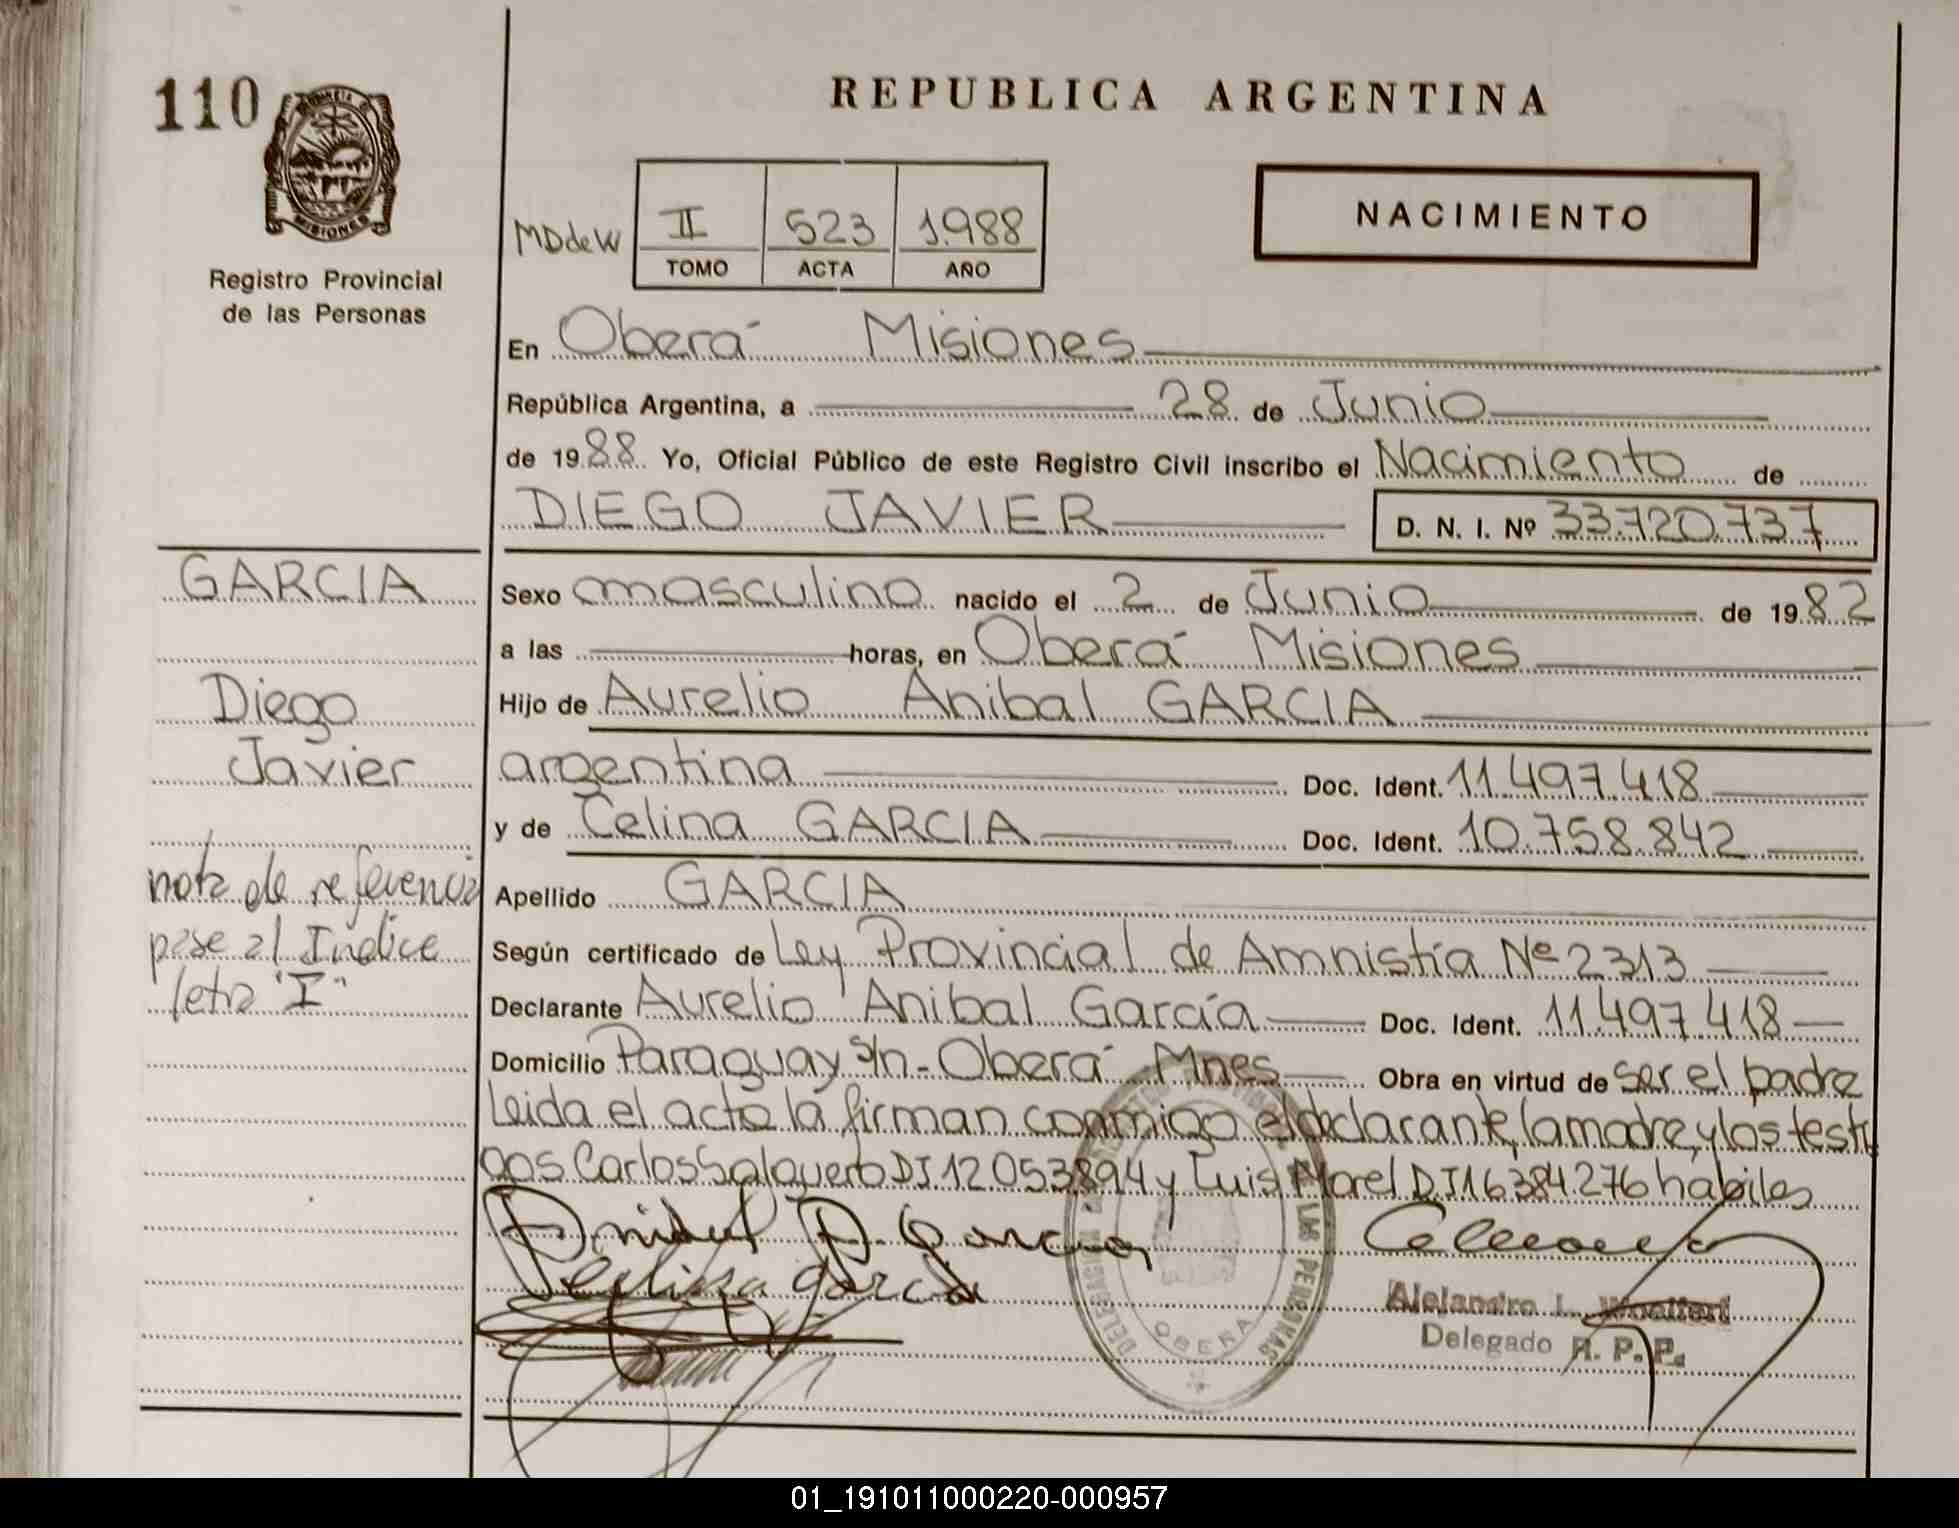 110
REPUBLICA ARGENTINA
MISIONES
Registro Provincial
de las Personas
MDdeW
II 523 1.988
TOMO ACTA AÑO
NACIMIENTO
En Oberá Misiones
República Argentina, a 28 de Junio
de 1988 Yo, Oficial Público de este Registro Civil inscribo el Nacimiento de
DIEGO JAVIER D. N. I. Nº 33.720.737
GARCIA
Diego
Javier
nota de referencia
pase al Indice
letra "I"
Sexo masculino nacido el 2 de Junio de 1982
a las horas, en Oberá Misiones
Hijo de Aurelio Anibal GARCIA
argentina Doc. Ident. 11.497.418
y de Celina GARCIA Doc. Ident. 10.758.842
Apellido GARCIA
Según certificado de Ley Provincial de Amnistía Nº 2313
Declarante Aurelio Anibal García Doc. Ident. 11.497.418
Domicilio Paraguay s/n - Oberá Mnes Obra en virtud de ser el padre
Leida el acta la firman conmigo el declarante, la madre, y los testi
gos Carlos DI 12.053.894 y Luis Morel DI 16.384.276 habiles
garcia
DELEGACION LAS PERSONAS
OBERA
Alejandro L.
Delegado R. P. P.
01_191011000220-000957